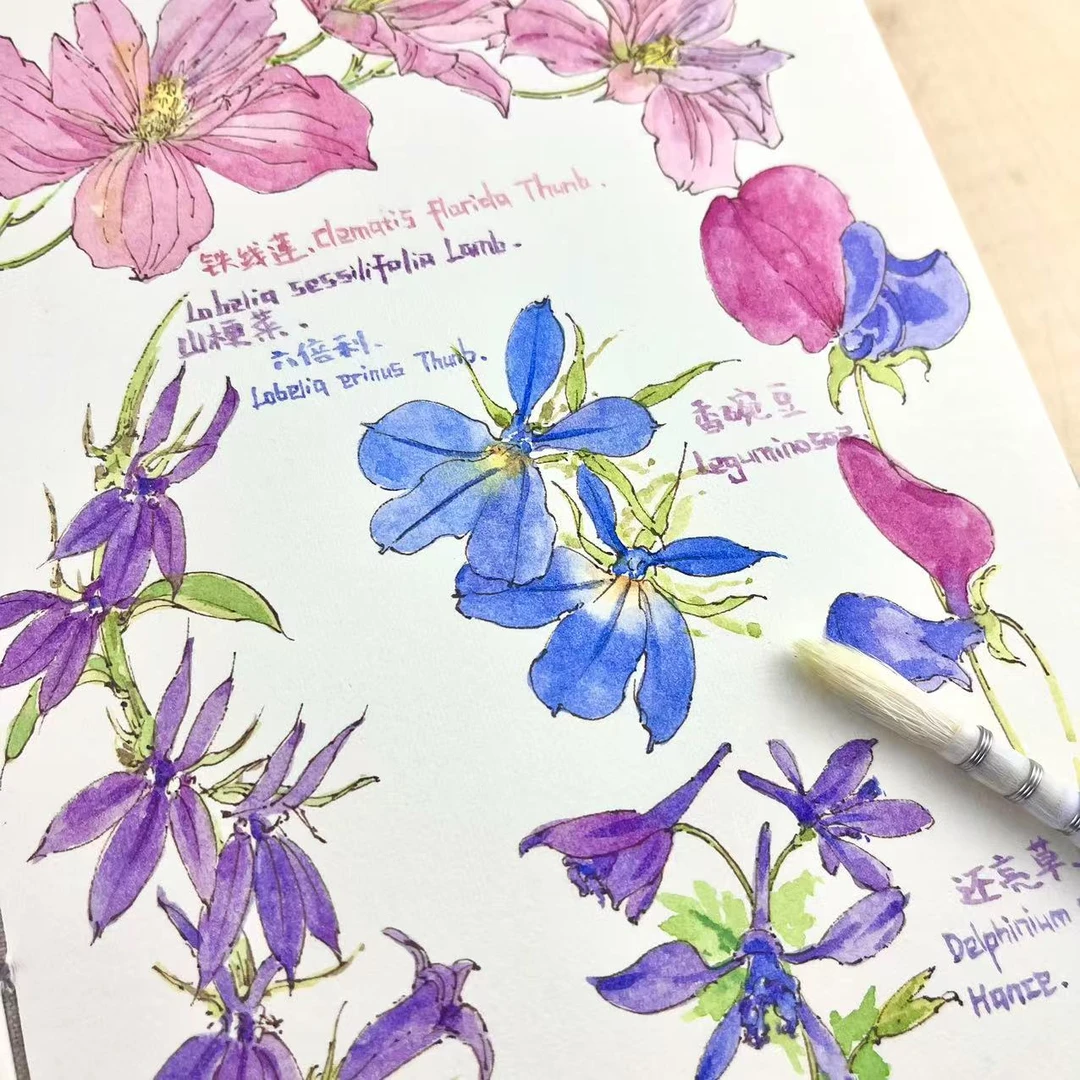 铁线莲.Clematis florida Thunb.
Lobelia sessilifolia Lamb.
山梗菜.
六倍利.
Lobelia erinus Thunb.
香豌豆
Leguminosae
还亮草.
Delphinium
Hance.